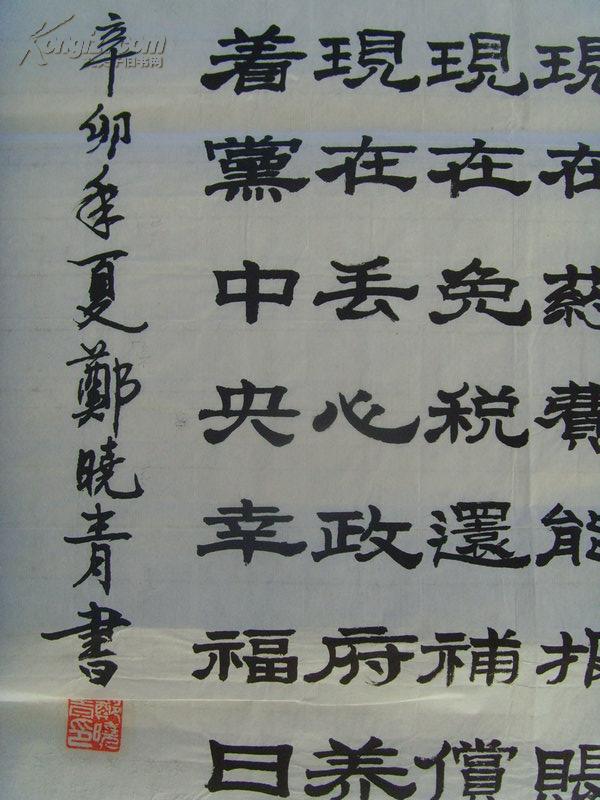 現在药費能报
現在免税還補償
現在丢心政府养
着黨中央幸福日
辛卯年夏鄭曉青書
鄭曉青印
Kongfz.com
孔夫子旧书网